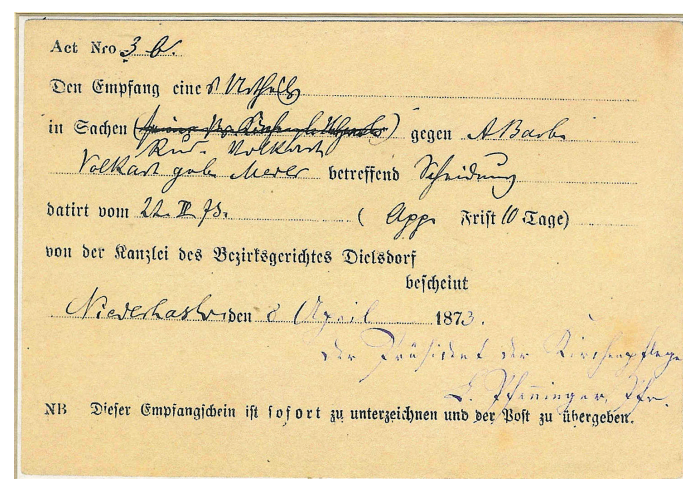 Act Nro 3 b.
Den Empfang eines Urtheils
in Sachen ( ) gegen A Barb.
Rud. Volkart
Volkart geb. Meier betreffend Scheidung
datirt vom 22. III 73. ( App. Frist 10 Tage)
von der Kanzlei des Bezirksgerichtes Dielsdorf
bescheint
Niederhasli den 8 April 1873.
Der Präsident der Kirchenpflege
Pfenninger, Pfr.
NB Dieser Empfangschein ist sofort zu unterzeichnen und der Post zu übergeben.